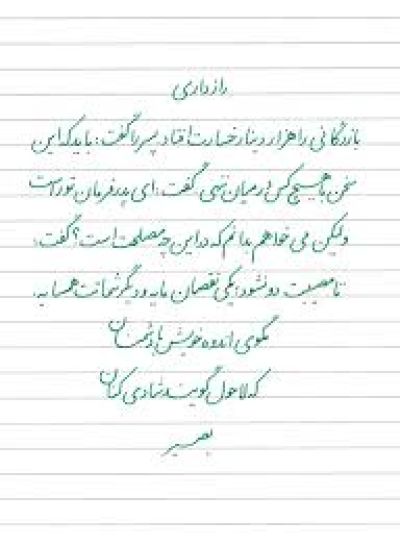 رازداری
بازرگانی را هزار دینار خسارت افتاد پسر را گفت: باید که این
سخن با هیچ کس در میان ننهی. گفت: ای پدر فرمان تو راست
ولیکن می خواهم بدانم که در این چه مصلحت است؟ گفت:
تا مصیبت دو نشود؛ یکی نقصان مایه و دیگر شماتت همسایه.
مگوی اندوه خویش با دشمنان
که لاحول گویند شادی کنان